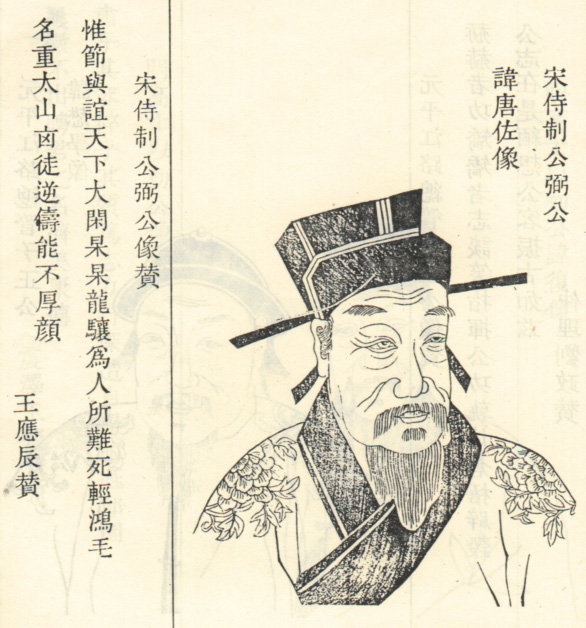 宋侍制公弼公
諱唐佐像
宋侍制公弼公像贊
惟節與誼天下大閑杲杲龍驤爲人所難死輕鴻毛
名重太山卤徒逆儔能不厚顔
王應辰贊